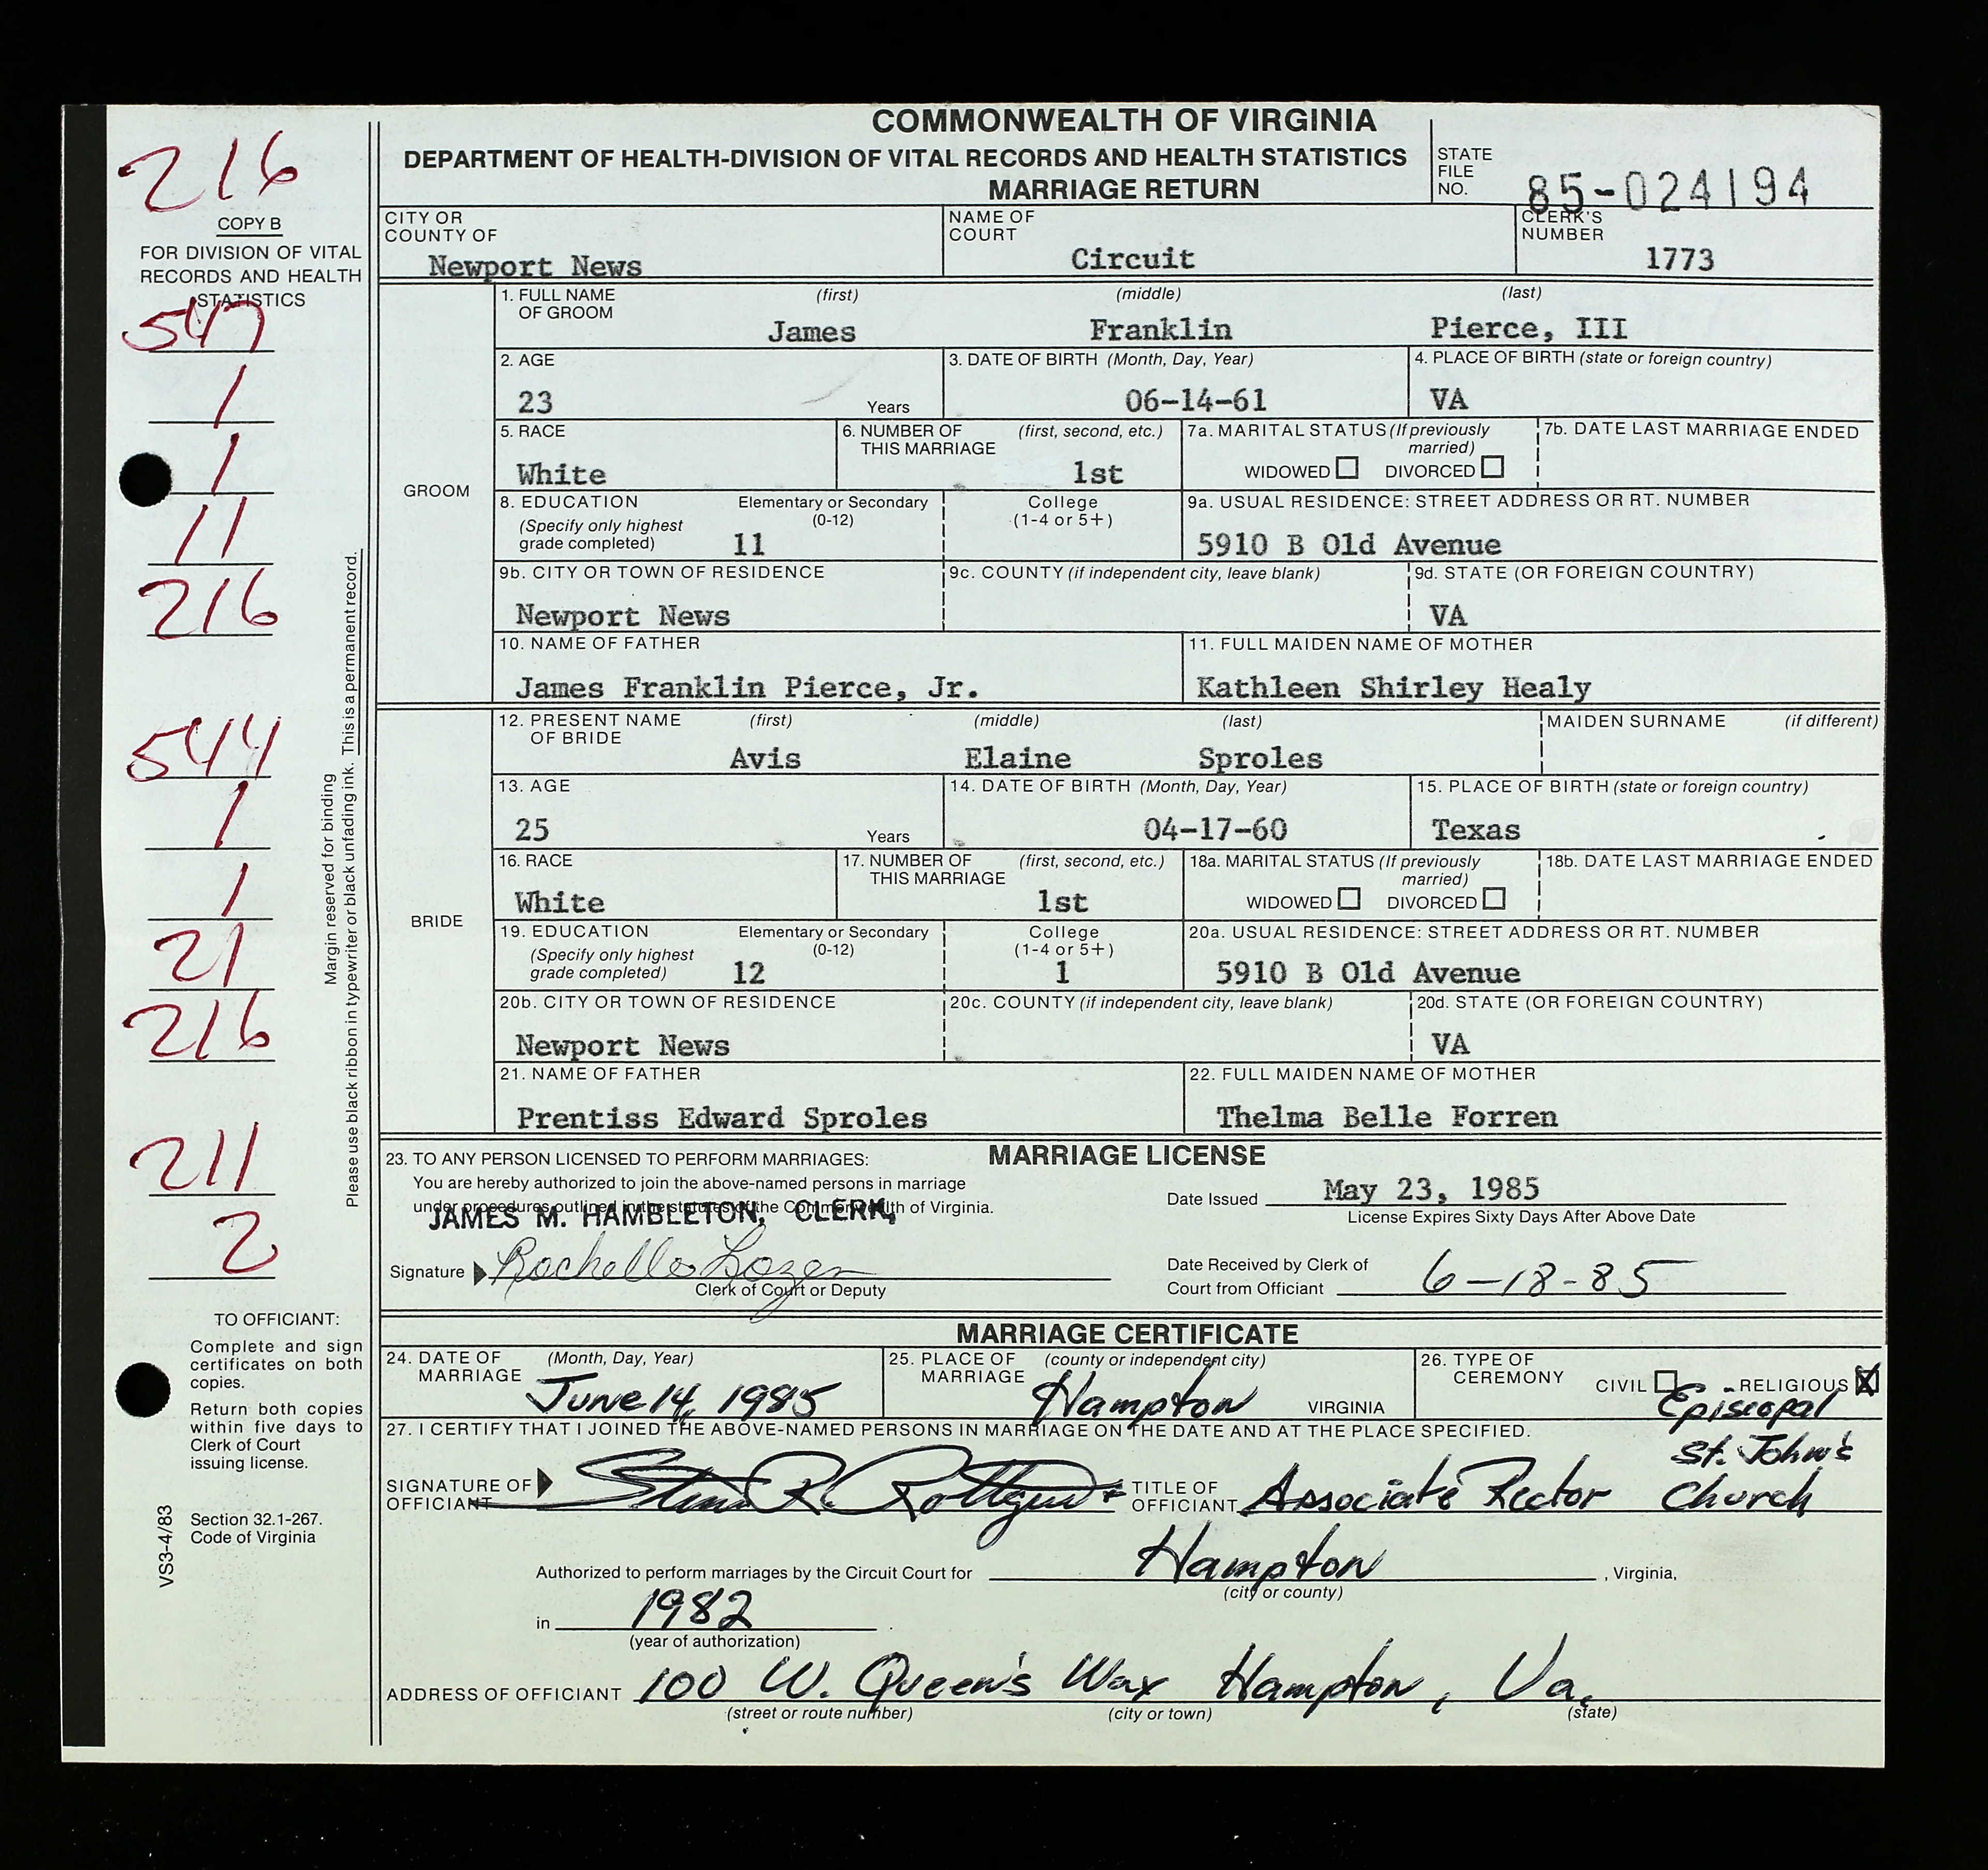 COMMONWEALTH OF VIRGINIA
DEPARTMENT OF HEALTH-DIVISION OF VITAL RECORDS AND HEALTH STATISTICS
MARRIAGE RETURN
STATE FILE NO. 85-024194
216
COPY B
FOR DIVISION OF VITAL
RECORDS AND HEALTH
STATISTICS
547
1
1
11
216
544
1
1
21
216
211
2
Margin reserved for binding
Please use black ribbon in typewriter or black unfading ink. This is a permanent record.
TO OFFICIANT:
Complete and sign
certificates on both
copies.
Return both copies
within five days to
Clerk of Court
issuing license.
Section 32.1-267.
Code of Virginia
VS3-4/83
CITY OR COUNTY OF Newport News
NAME OF COURT Circuit
CLERK'S NUMBER 1773
GROOM
1. FULL NAME OF GROOM (first) James (middle) Franklin (last) Pierce, III
2. AGE 23 Years
3. DATE OF BIRTH (Month, Day, Year) 06-14-61
4. PLACE OF BIRTH (state or foreign country) VA
5. RACE White
6. NUMBER OF THIS MARRIAGE (first, second, etc.) 1st
7a. MARITAL STATUS (If previously married) WIDOWED DIVORCED
7b. DATE LAST MARRIAGE ENDED
8. EDUCATION (Specify only highest grade completed) Elementary or Secondary (0-12) 11
College (1-4 or 5+)
9a. USUAL RESIDENCE: STREET ADDRESS OR RT. NUMBER 5910 B Old Avenue
9b. CITY OR TOWN OF RESIDENCE Newport News
9c. COUNTY (if independent city, leave blank)
9d. STATE (OR FOREIGN COUNTRY) VA
10. NAME OF FATHER James Franklin Pierce, Jr.
11. FULL MAIDEN NAME OF MOTHER Kathleen Shirley Healy
BRIDE
12. PRESENT NAME OF BRIDE (first) Avis (middle) Elaine (last) Sproles
MAIDEN SURNAME (if different)
13. AGE 25 Years
14. DATE OF BIRTH (Month, Day, Year) 04-17-60
15. PLACE OF BIRTH (state or foreign country) Texas
16. RACE White
17. NUMBER OF THIS MARRIAGE (first, second, etc.) 1st
18a. MARITAL STATUS (If previously married) WIDOWED DIVORCED
18b. DATE LAST MARRIAGE ENDED
19. EDUCATION (Specify only highest grade completed) Elementary or Secondary (0-12) 12
College (1-4 or 5+) 1
20a. USUAL RESIDENCE: STREET ADDRESS OR RT. NUMBER 5910 B Old Avenue
20b. CITY OR TOWN OF RESIDENCE Newport News
20c. COUNTY (if independent city, leave blank)
20d. STATE (OR FOREIGN COUNTRY) VA
21. NAME OF FATHER Prentiss Edward Sproles
22. FULL MAIDEN NAME OF MOTHER Thelma Belle Forren
MARRIAGE LICENSE
23. TO ANY PERSON LICENSED TO PERFORM MARRIAGES:
You are hereby authorized to join the above-named persons in marriage
under procedures outlined in the statutes of the Commonwealth of Virginia.
JAMES M. HAMBLETON, CLERK,
Signature Rochelle
Clerk of Court or Deputy
Date Issued May 23, 1985
License Expires Sixty Days After Above Date
Date Received by Clerk of
Court from Officiant 6-18-85
MARRIAGE CERTIFICATE
24. DATE OF MARRIAGE (Month, Day, Year) June 14, 1985
25. PLACE OF MARRIAGE (county or independent city) Hampton VIRGINIA
26. TYPE OF CEREMONY CIVIL RELIGIOUS X
Episcopal
St. John's
Church
27. I CERTIFY THAT I JOINED THE ABOVE-NAMED PERSONS IN MARRIAGE ON THE DATE AND AT THE PLACE SPECIFIED.
SIGNATURE OF OFFICIANT
TITLE OF OFFICIANT Associate Rector
Authorized to perform marriages by the Circuit Court for Hampton , Virginia,
(city or county)
in 1982
(year of authorization)
ADDRESS OF OFFICIANT 100 W. Queen's Way Hampton, Va.
(street or route number) (city or town) (state)